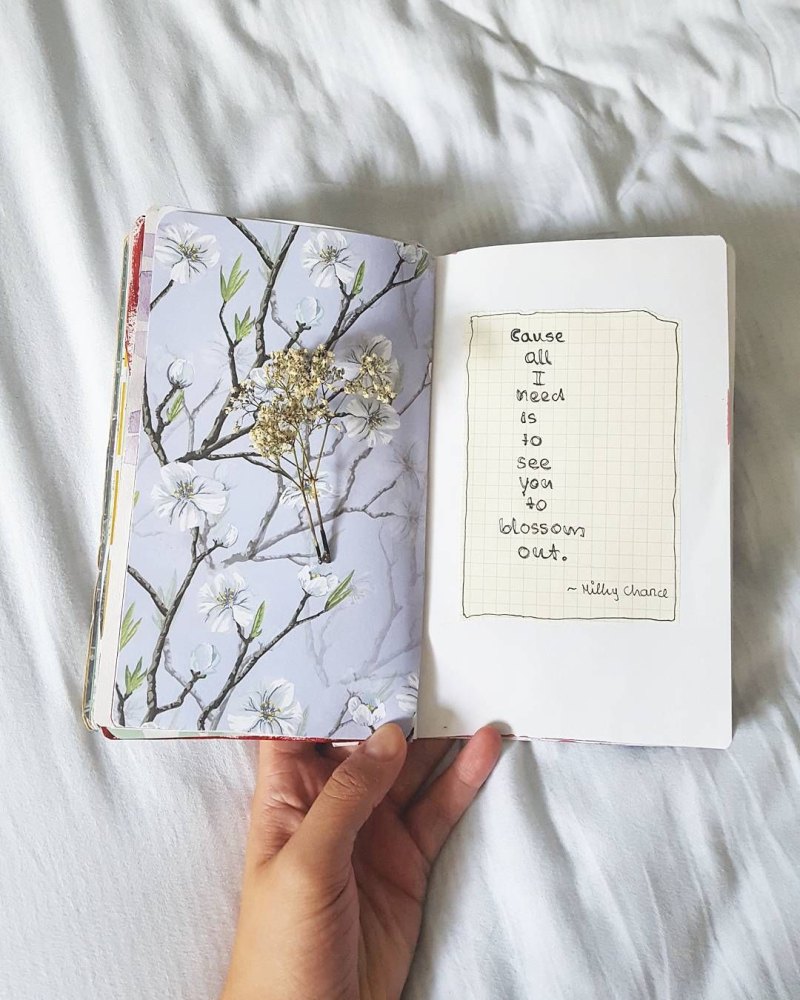 Cause
all
I
need
is
to
see
you
to
blossom
out.
~ Milky Chance